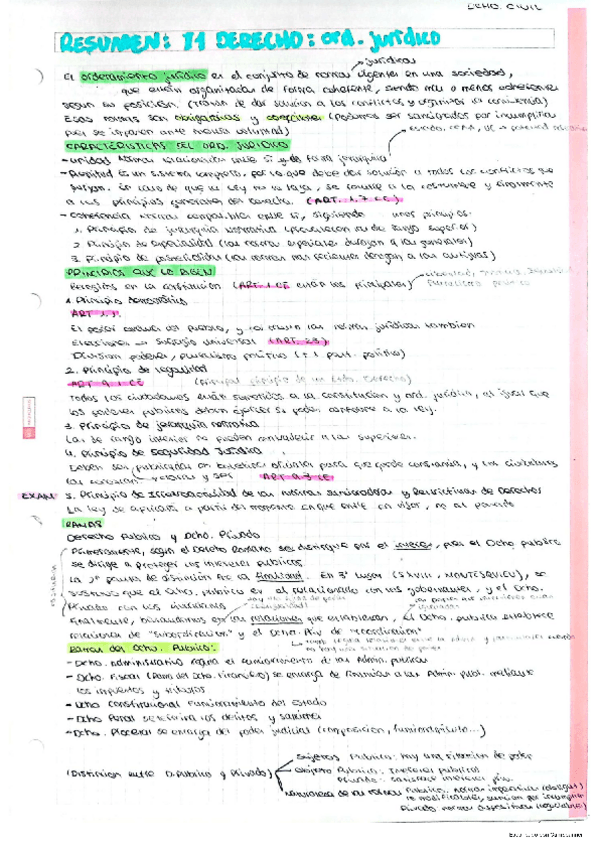 DCHO. CIVIL
RESUMEN: T1 DERECHO: ord. jurídico
jurídicas
El ordenamiento jurídico es el conjunto de normas vigentes en una sociedad,
que están organizadas de forma coherente, siendo más o menos
según su posición. (tratan de dar solución a los conflictos y organizar la convivencia)
Esas normas son obligatorias y coercitivas (podemos ser sancionados por incumplirlas
pues se imponen ante nuestra voluntad)
CARACTERÍSTICAS DEL ORD. JURÍDICO
- Unidad Normas relacionadas entre sí y de forma jerárquica
- Plenitud Es un sistema completo, por lo que debe dar solución a todos los conflictos que
surjan. En caso de que su ley no lo haga, se acude a la costumbre y finalmente
a los principios generales del derecho. (ART. 1.7 CC)
- Coherencia Normas compatibles entre sí, siguiendo unos principios:
1. Principio de jerarquía normativa (prevalecen su de rango superior)
2. Principio de especialidad (las normas especiales derogan a las generales)
3. Principio de posterioridad (las normas más recientes derogan a las antiguas)
PRINCIPIOS QUE LO RIGEN
Recogidos en la constitución (ART. 1 CE están los principales)
pluralismo político
1. Principio democrático
ART 1.1.
El poder emana del pueblo, y se crean las normas jurídicas también
Elecciones → Sufragio universal (ART. 23)
División poderes, pluralismo político (+1 part. político)
2. Principio de legalidad
ART 9.1 CE (principal principio de un Estdo. Derecho)
Todos los ciudadanos están sometidos a la constitución y ord. jurídico, al igual que
los poderes públicos deben ejercer su poder conforme a la ley.
3. Principio de jerarquía normativa
Las de rango inferior no pueden contradecir a las superiores.
4. Principio de seguridad jurídica
Deben ser publicadas en boletines oficiales para que pueda conocerlas, y los ciudadanos
ART 9.3 CE
EXAM 5. Principio de Irretroactividad de las normas sancionadoras y Restrictivas de Derechos
La ley se aplicará a partir del momento en que entre en vigor, no al pasado
RAMAS
Derecho Público y Dcho. Privado
Primeramente, según el Derecho Romano se distingue por el interés, pues el Dcho público
se dirige a proteger los intereses públicos.
La 2ª prueba de distinción era la finalidad. En 3º lugar (S XVIII, MONTESQUIEU), se
sostuvo que el Dcho. público es el relacionado con los gobernantes, y el Dcho.
Privado con los ciudadanos
Finalmente, diferenciamos por las relaciones que establecen, el Dcho. público establece
relaciones de "subordinación" y el Dcho. Priv de "coordinación"
Ramas del Dcho. Público:
- Dcho. administrativo regula el funcionamiento de las Admin. públicas
- Dcho. Fiscal (Rama del Dcho. Financiero) se encarga de financiar a las Admin. públ. mediante
los impuestos y tributos
- Dcho Constitucional Funcionamiento del Estado
- Dcho Penal determina los delitos y sanciones
- Dcho. Procesal se encarga del poder judicial (composición, funcionamiento...)
(Distinción entre D. Público y Privado)
Sujetos Público: hay una situación de poder
Objetivo Público: intereses públicos
Privado: satisface intereses priv.
Naturaleza de las normas Público, normas imperativas (obligat)
no modificables, sanción por incumplir
Privado normas dispositivas